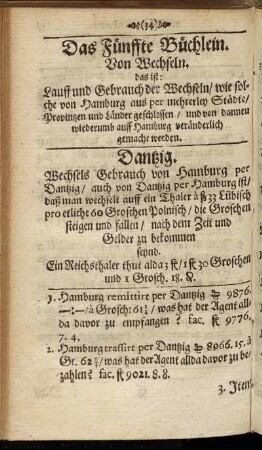 (34)
Das Fünffte Büchlein.
Von Wechseln.
das ist:
Lauff und Gebrauch der Wechseln / wie sol-
che von Hamburg aus per mehrerley Städte /
Provintzen und Länder geschlossen / und von dannen
wiederumb auff Hamburg veränderlich
gemacht werden.
Dantzig.
Wechsels Gebrauch von Hamburg per
Dantzig / auch von Dantzig per Hamburg ist /
daß man wechselt auff ein Thaler à ß 33 Lübisch
pro etliche 60 Groschen Polnisch / die Groschen
steigen und fallen / nach dem Zeit und
Gelder zu bekommen
seynd.
Ein Reichsthaler thut alda 3 fl / 1 fl 30 Groschen
und 1 Grosch. 18. ₰.
1. Hamburg remittirt per Dantzig 9876.
—:—/ à Grosch: 61½ / was hat der Agent all-
da davor zu empfangen ? fac. fl 9776.
7. 4.
2. Hamburg trassirt per Dantzig 8966. 15. à
Gr. 62½ / was hat der Agent allda davor zu be-
zahlen ? fac. fl 9021. 8. 8.
3. Item